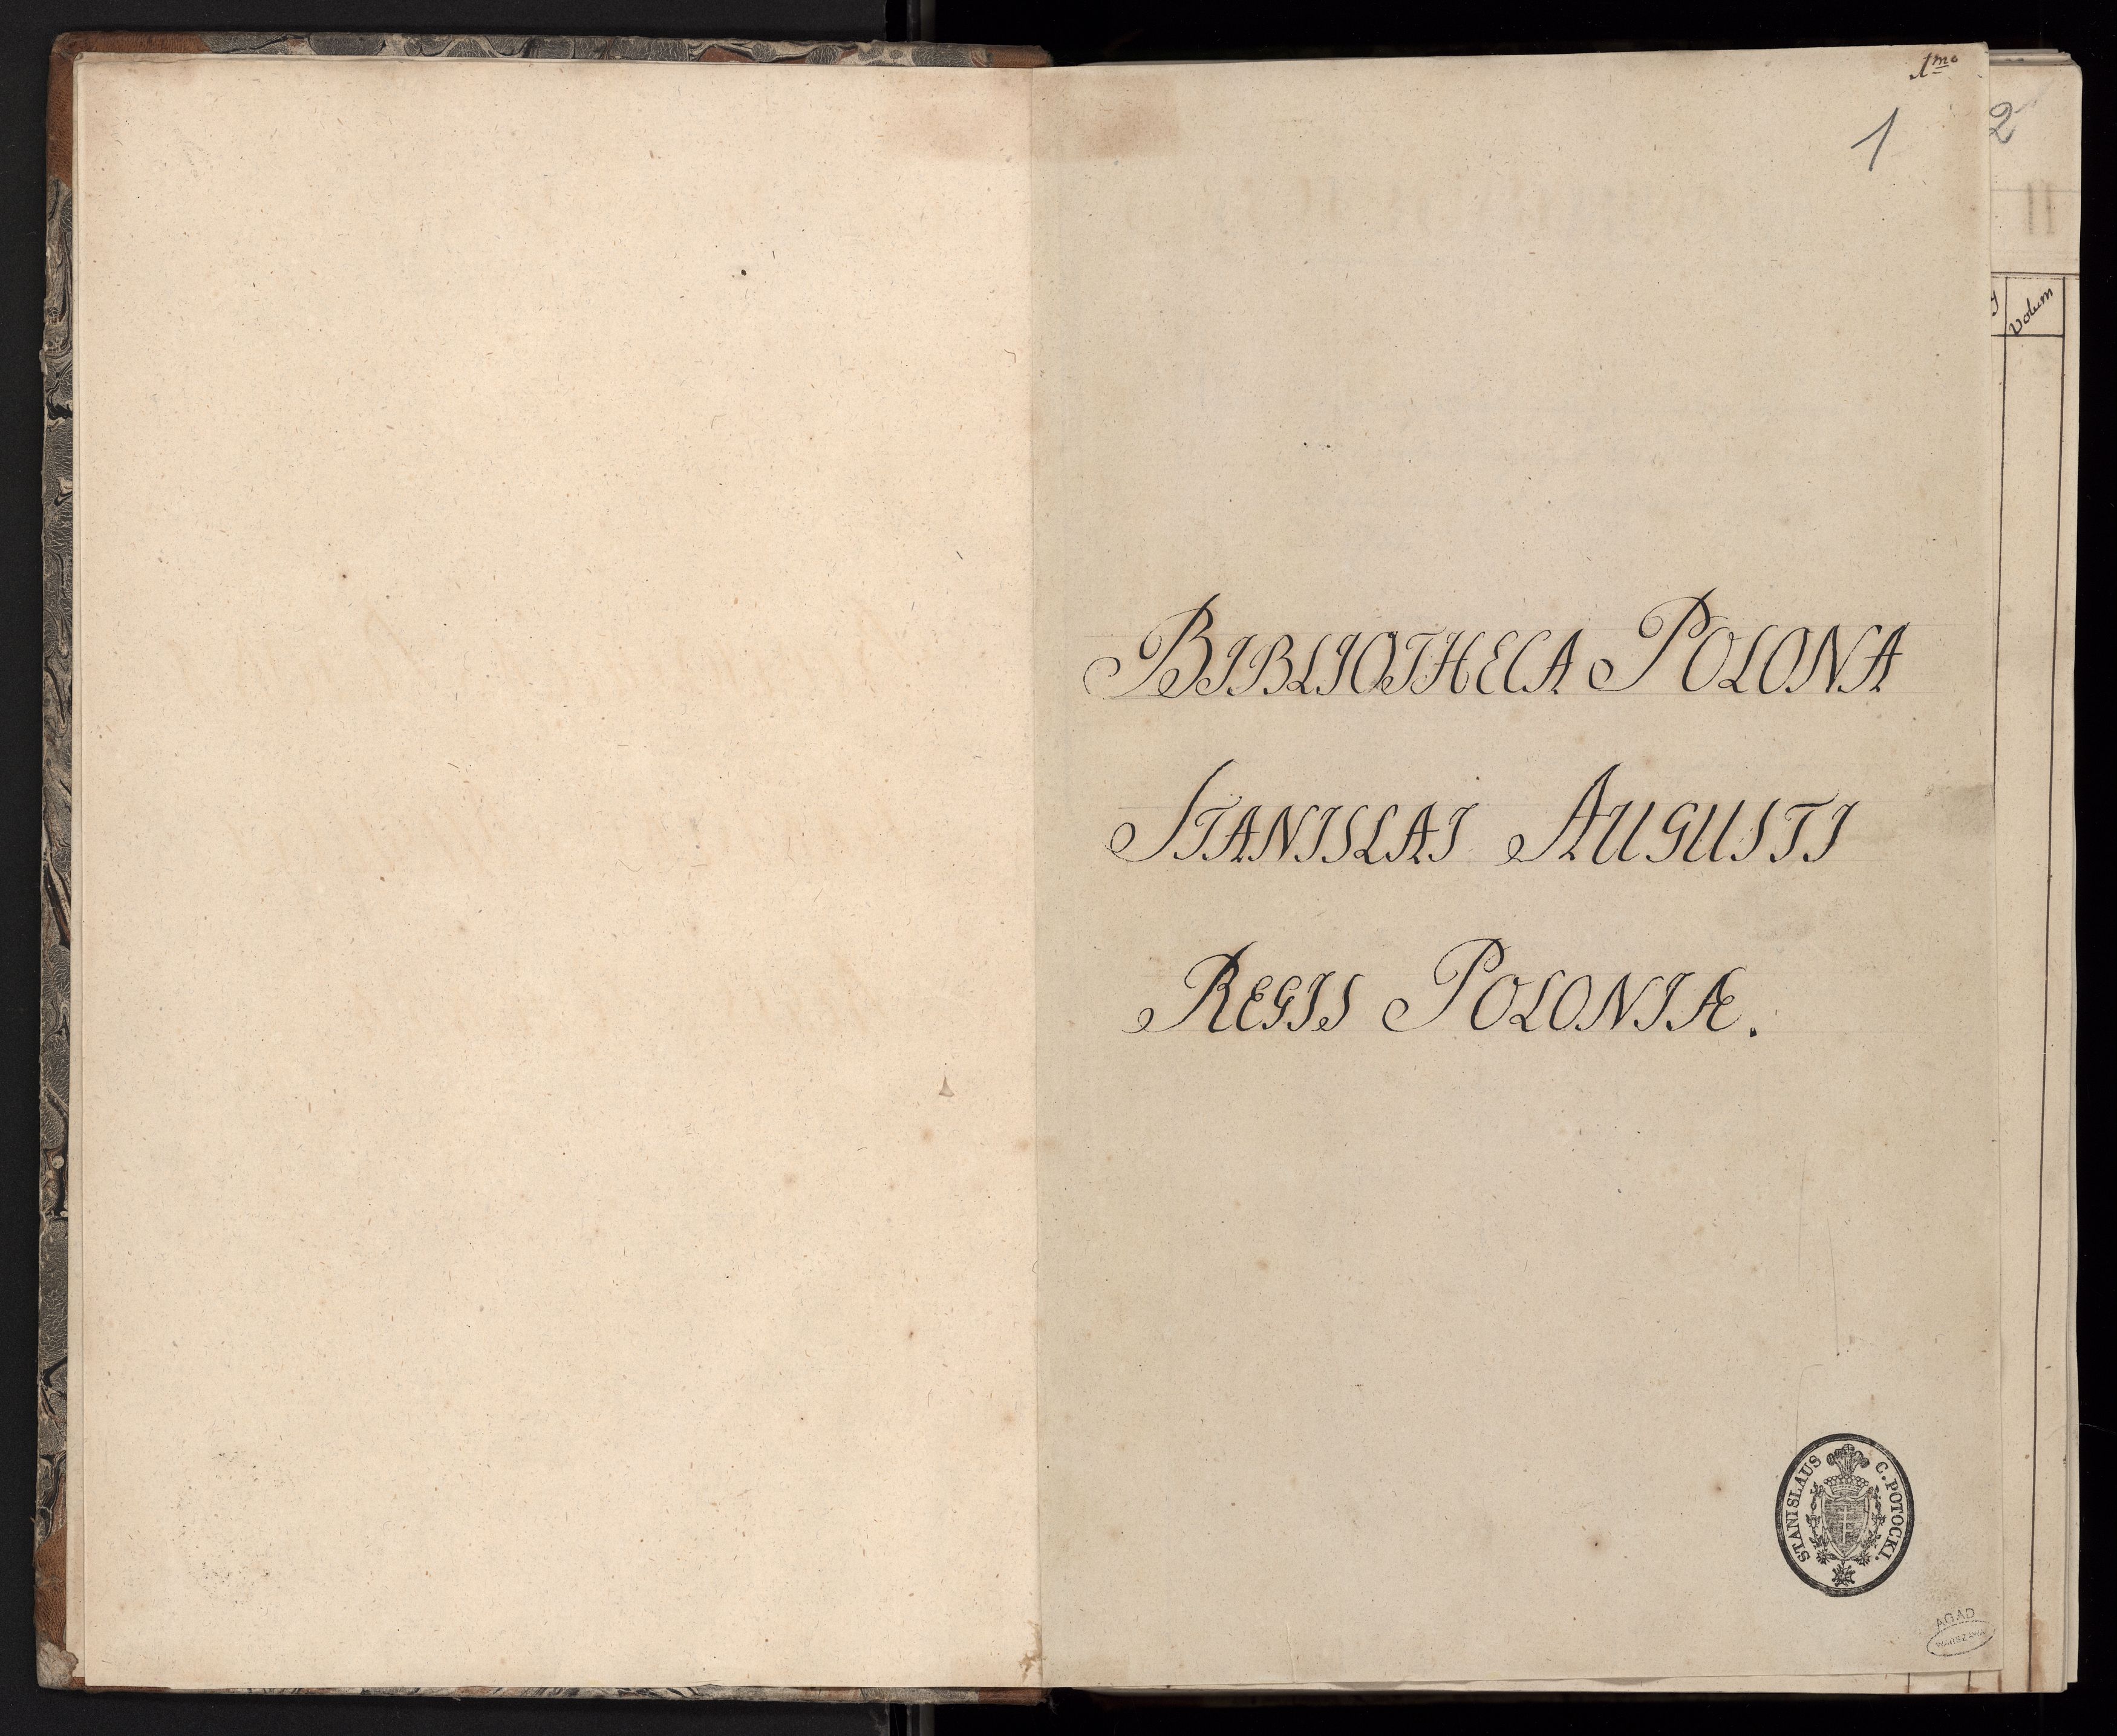 1mo
1
2
Volum
BIBLIOTHECA POLONA
STANISLAI AUGUSTI
REGIS POLONIÆ.
STANISLAUS C. POTOCKI.
AGAD
WARSZAWA